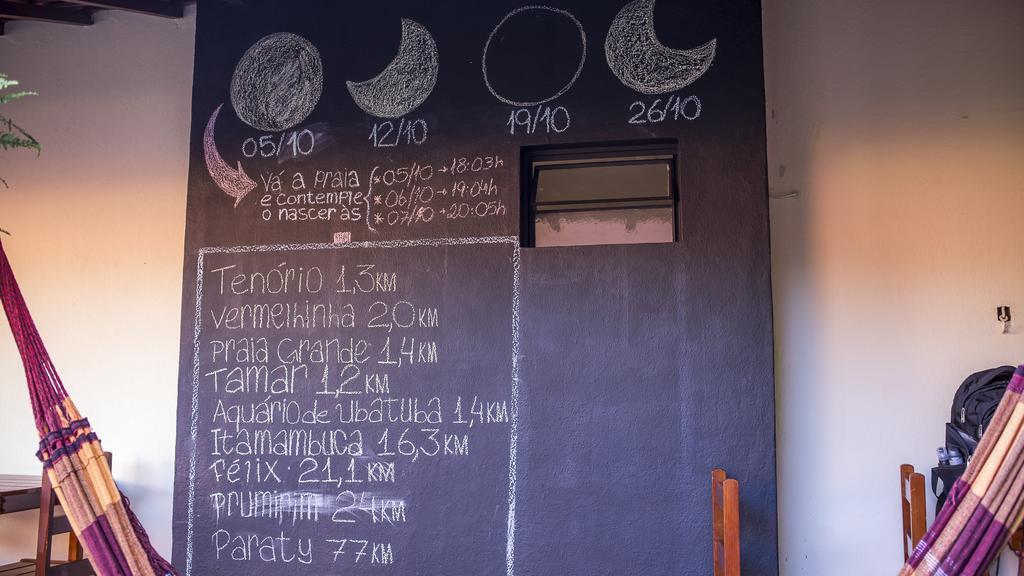 05/10 12/10 19/10 26/10
Vá a praia
e contemple
o nascer às
* 05/10 → 18:03h
* 06/10 → 19:04h
* 07/10 → 20:05h
Tenório 1,3KM
vermelhinha 2,0KM
Praia Grande 1,4KM
Tamar 1,2KM
Aquário de Ubatuba 1,4KM
Itamambuca 16,3KM
Félix 21,1KM
Prumirim 24KM
Paraty 77KM